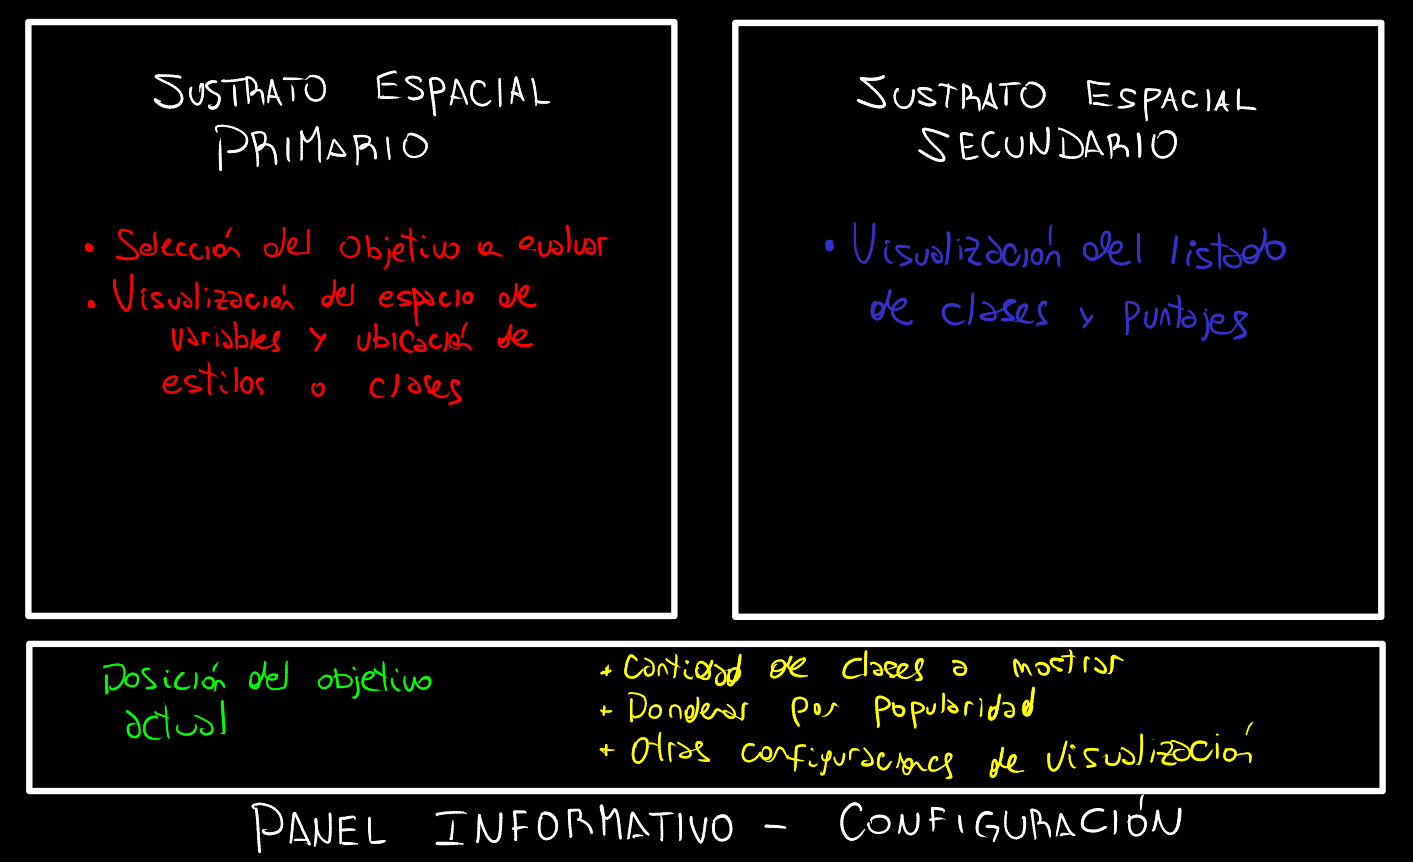 SUSTRATO ESPACIAL
PRIMARIO
• Selección del objetivo a evaluar
• Visualización del espacio de
variables y ubicación de
estilos o clases
SUSTRATO ESPACIAL
SECUNDARIO
• Visualización del listado
de clases y puntajes
Posición del objetivo
actual
+ Cantidad de clases a mostrar
+ Ponderar por popularidad
+ Otras configuraciones de visualización
PANEL INFORMATIVO - CONFIGURACIÓN